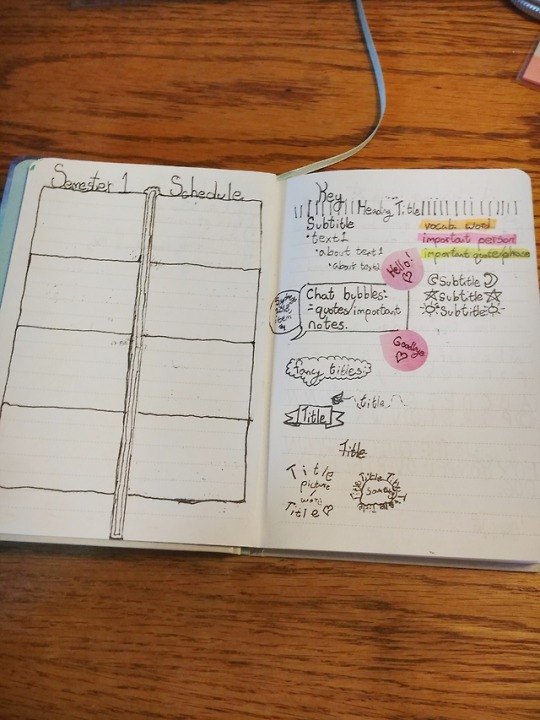 Semester 1 Schedule
Key
Heading Title
Subtitle
• text1
• about text1
• about text1
vocab word
important person
important quote/phrase
Hello! ♡
☾Subtitle☽
☆Subtitle☆
☼Subtitle☼
Chat bubbles:
- quotes/important
notes.
Goodbye ♡
fancy titles:
title
Title
Title
Title
picture
/
word
Title ♡
Title Title